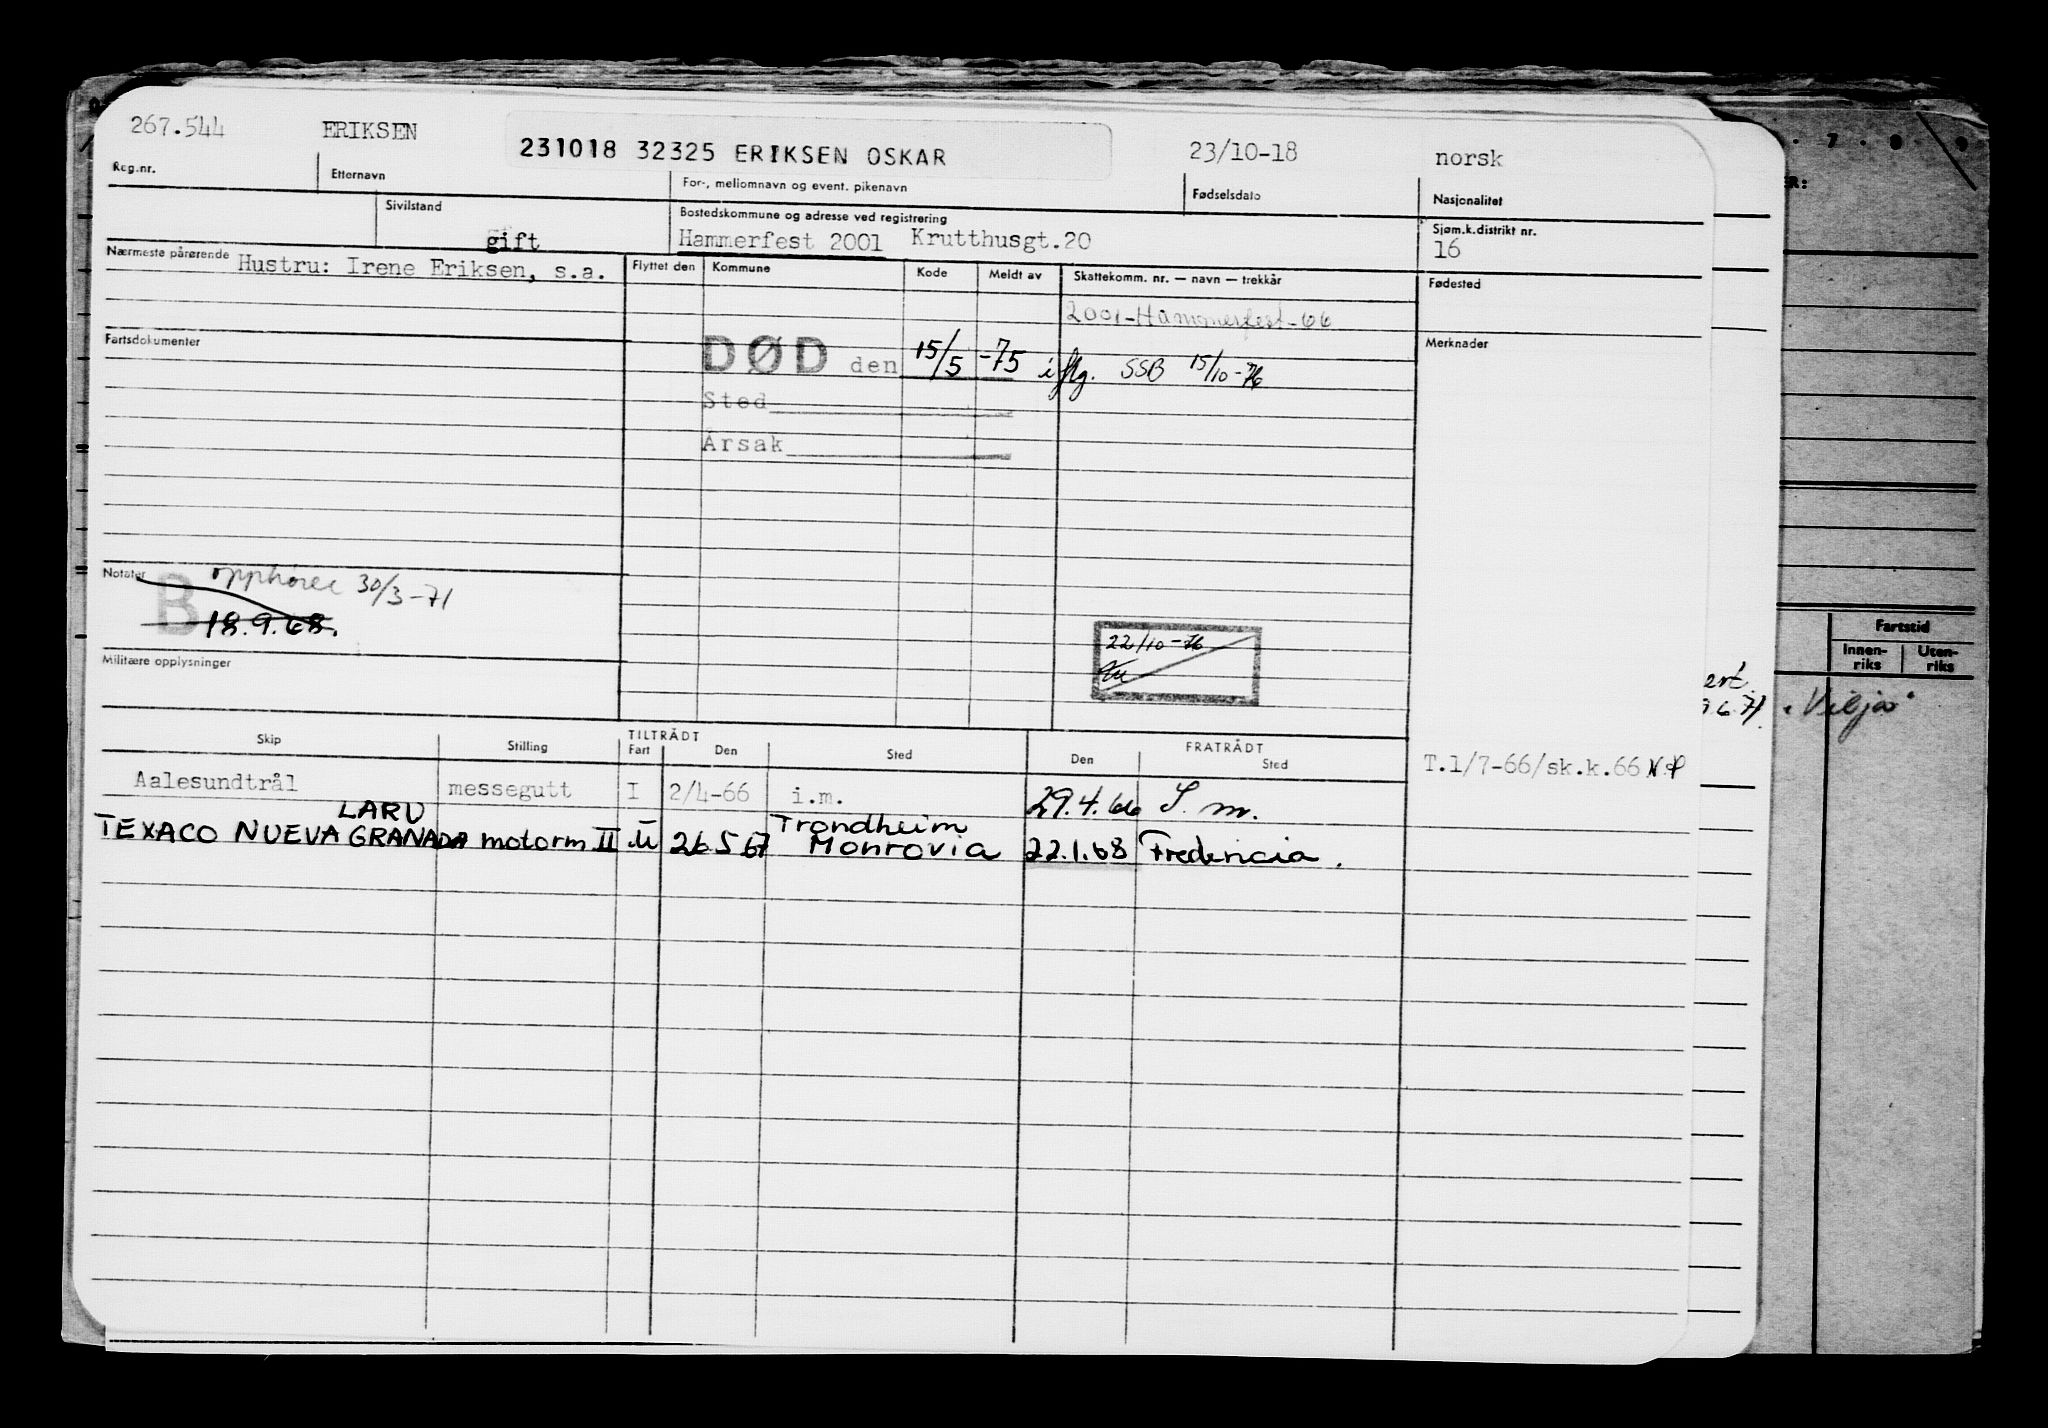 267.544 ERIKSEN 231018 32325 ERIKSEN OSKAR 23/10-18 norsk
Reg.nr. Etternavn For-, mellomnavn og event. pikenavn Fødselsdato Nasjonalitet
Sivilstand Bostedskommune og adresse ved registrering Sjøm.k.distrikt nr.
gift Hammerfest 2001 Krutthusgt.20 16
Nærmeste pårørende Hustru: Irene Eriksen, s.a. Flyttet den Kommune Kode Meldt av Skattekomm. nr. — navn — trekkår Fødested
2001-Hammerfest-66
Fartsdokumenter Merknader
DØD den 15/5 -75 iflg. SSB 15/10-76
Sted
Årsak
Notater opphører 30/3-71
B 18.9.68.
22/10-76
Militære opplysninger
Skip Stilling TILTRÅDT Fart Den Sted FRATRÅDT Den Sted
T.1/7-66/sk.k.66
Aalesundtrål messegutt I 2/4-66 i.m. 29.4.66 I.m.
LARU Trondheim
TEXACO NUEVA GRANADA motorm II U 26 5 67 Monrovia 22.1.68 Fredericia.
7 . 8 . 9
Fartstid
Innen-riks Uten-riks